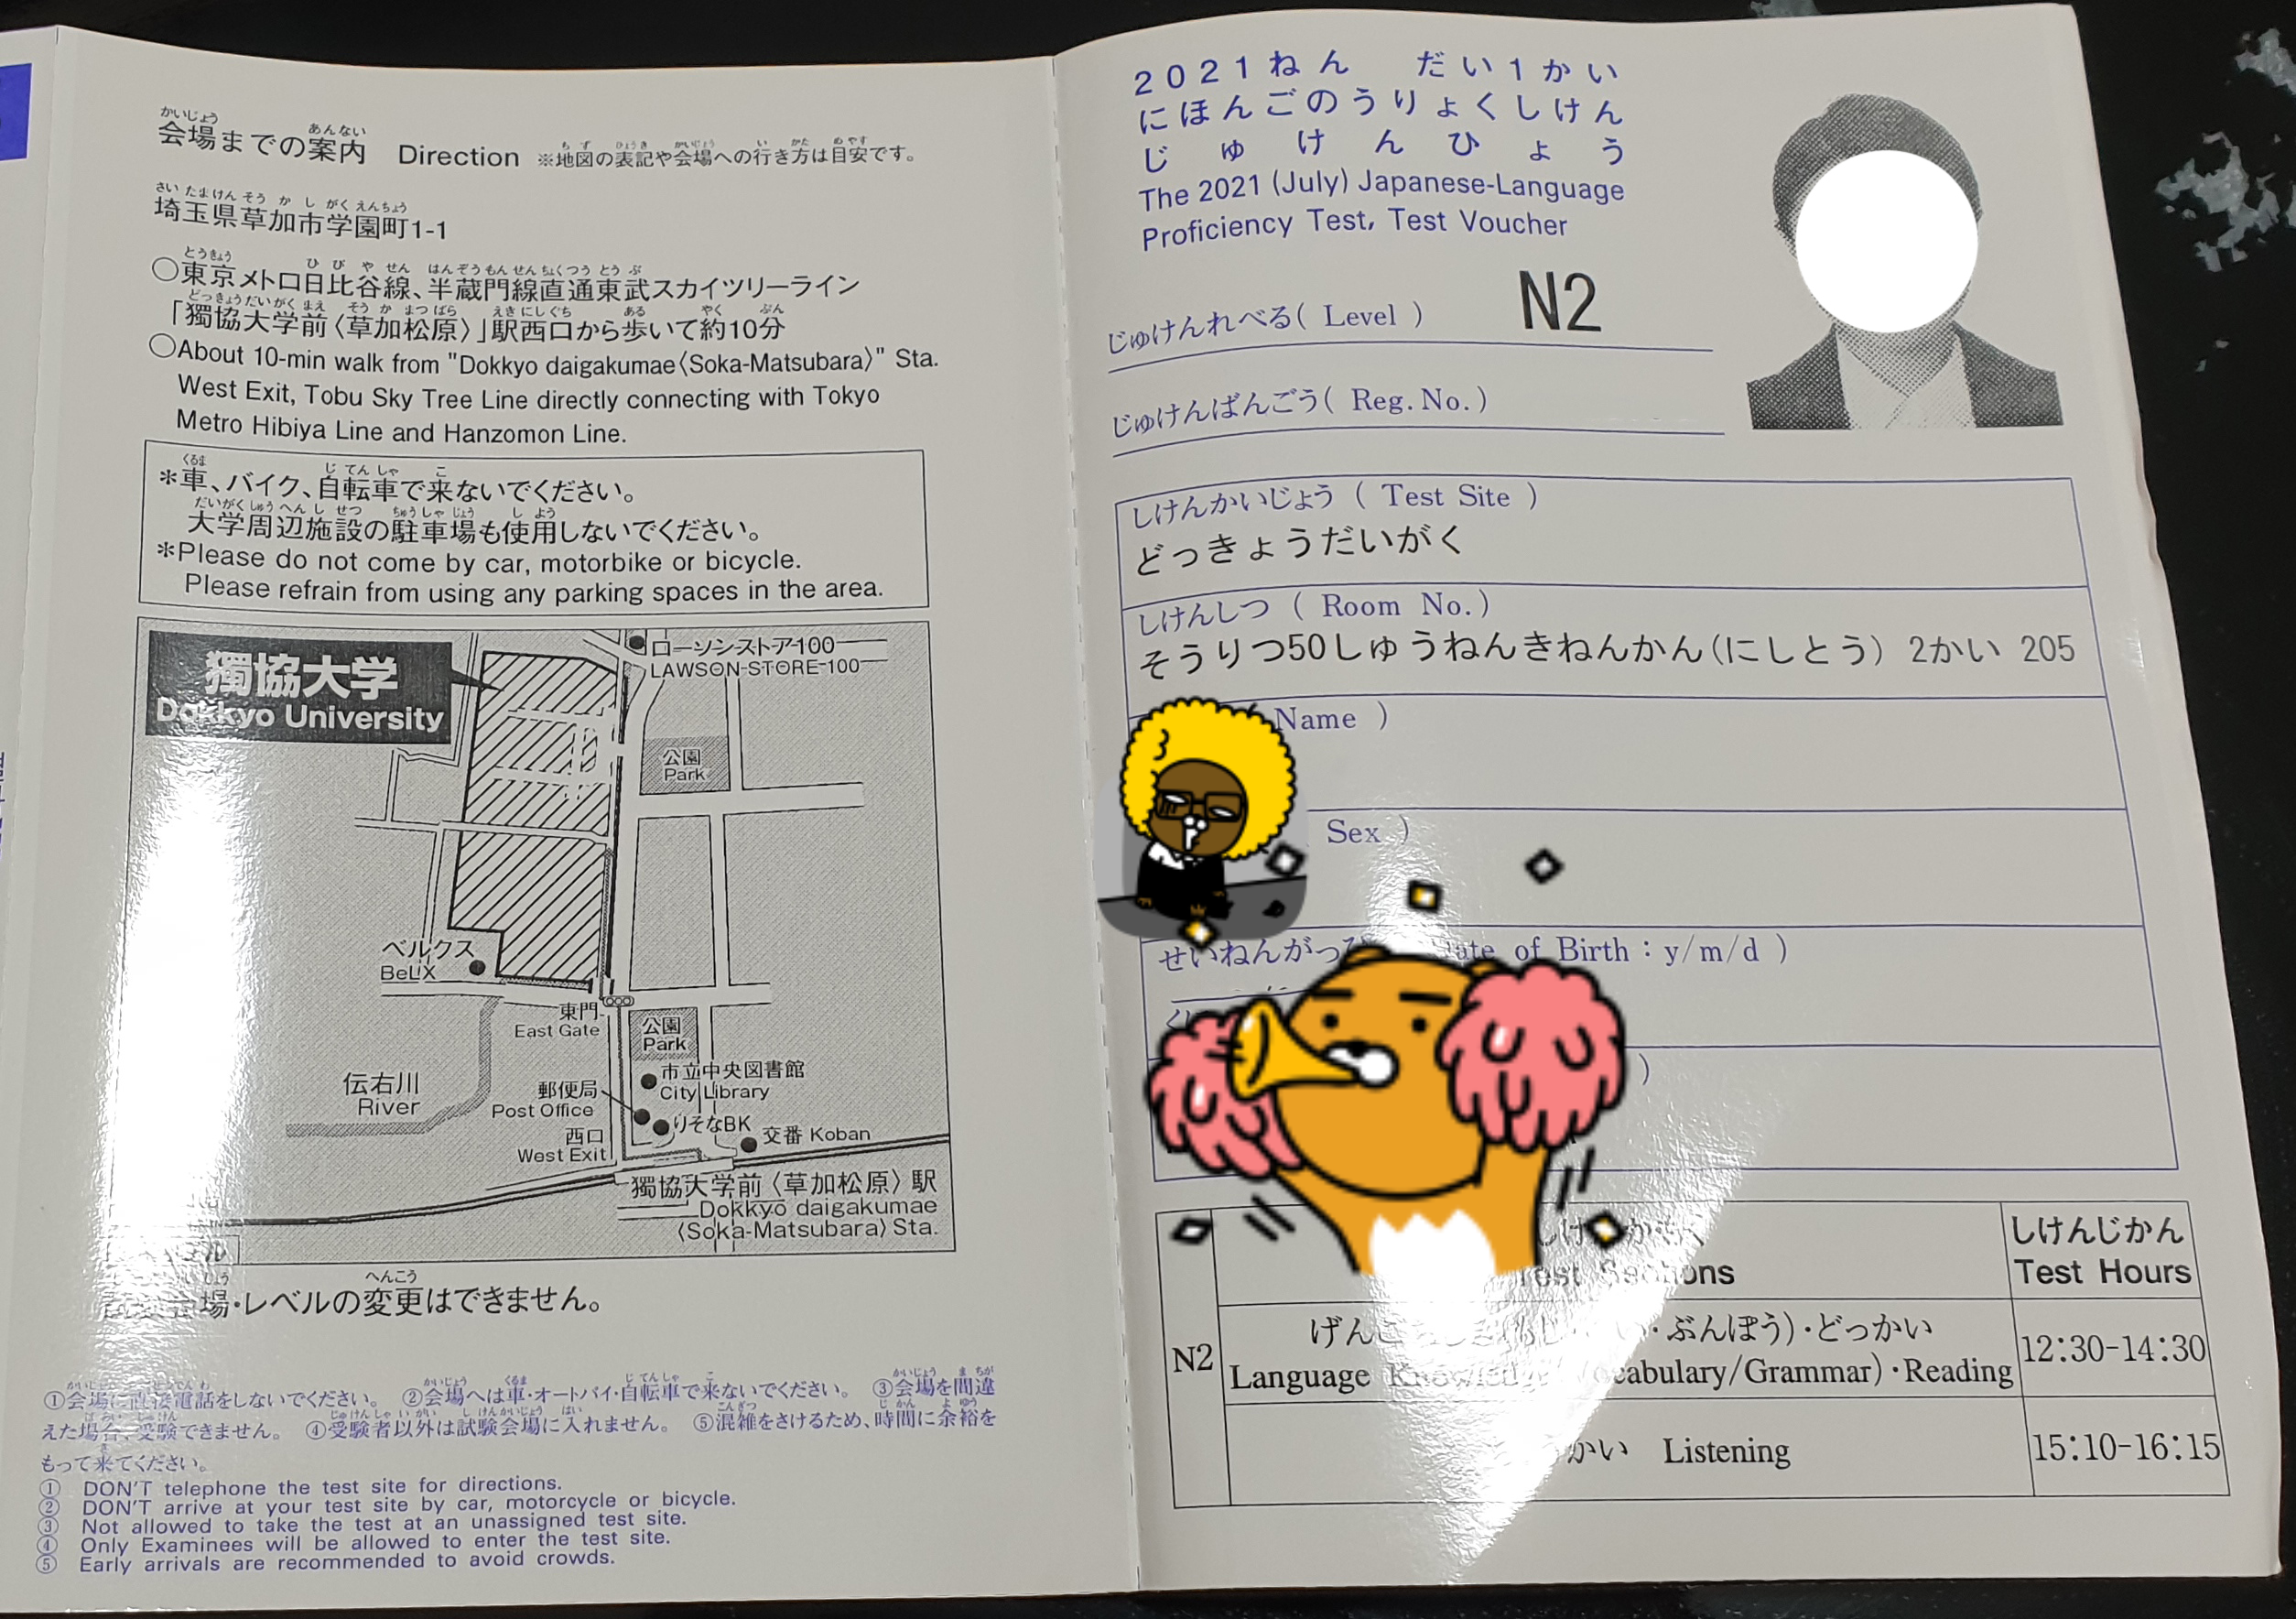 会場までの案内 Direction ※地図の表記や会場への行き方は目安です。
埼玉県草加市学園町1-1
○東京メトロ日比谷線、半蔵門線直通東武スカイツリーライン
「獨協大学前〈草加松原〉」駅西口から歩いて約10分
○About 10-min walk from "Dokkyo daigakumae〈Soka-Matsubara〉" Sta.
West Exit, Tobu Sky Tree Line directly connecting with Tokyo
Metro Hibiya Line and Hanzomon Line.
＊車、バイク、自転車で来ないでください。
大学周辺施設の駐車場も使用しないでください。
＊Please do not come by car, motorbike or bicycle.
Please refrain from using any parking spaces in the area.
獨協大学
Dokkyo University
ローソンストア100
LAWSON STORE 100
公園
Park
ベルクス
BeLX
東門
East Gate
公園
Park
市立中央図書館
City Library
伝右川
River
郵便局
Post Office
りそなBK
西口
West Exit
交番 Koban
獨協大学前〈草加松原〉駅
Dokkyo daigakumae
〈Soka-Matsubara〉Sta.
場・レベルの変更はできません。
①会場に直接電話をしないでください。 ②会場へは車・オートバイ・自転車で来ないでください。 ③会場を間違
えた場合、受験できません。 ④受験者以外は試験会場に入れません。 ⑤混雑をさけるため、時間に余裕を
もって来てください。
① DON'T telephone the test site for directions.
② DON'T arrive at your test site by car, motorcycle or bicycle.
③ Not allowed to take the test at an unassigned test site.
④ Only Examinees will be allowed to enter the test site.
⑤ Early arrivals are recommended to avoid crowds.
2021ねん だい1かい
にほんごのうりょくしけん
じゅけんひょう
The 2021 (July) Japanese-Language
Proficiency Test, Test Voucher
じゅけんれべる( Level ) N2
じゅけんばんごう( Reg.No.)
しけんかいじょう ( Test Site )
どっきょうだいがく
しけんしつ ( Room No.)
そうりつ50しゅうねんきねんかん(にしとう) 2かい 205
Name )
Sex )
せいねんがっぴ Date of Birth : y/m/d )
)
Test Sections
しけんじかん
Test Hours
N2
ぶんぽう)・どっかい
Language Knowledge (Vocabulary/Grammar)・Reading
12:30-14:30
かい Listening
15:10-16:15